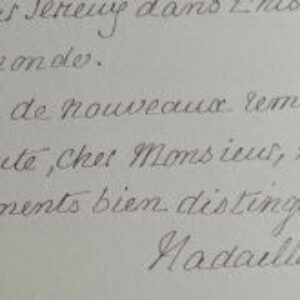 serieux dans l'his
monde.
de nouveaux rem
, cher Monsieur,
ments bien disting
Nadaill